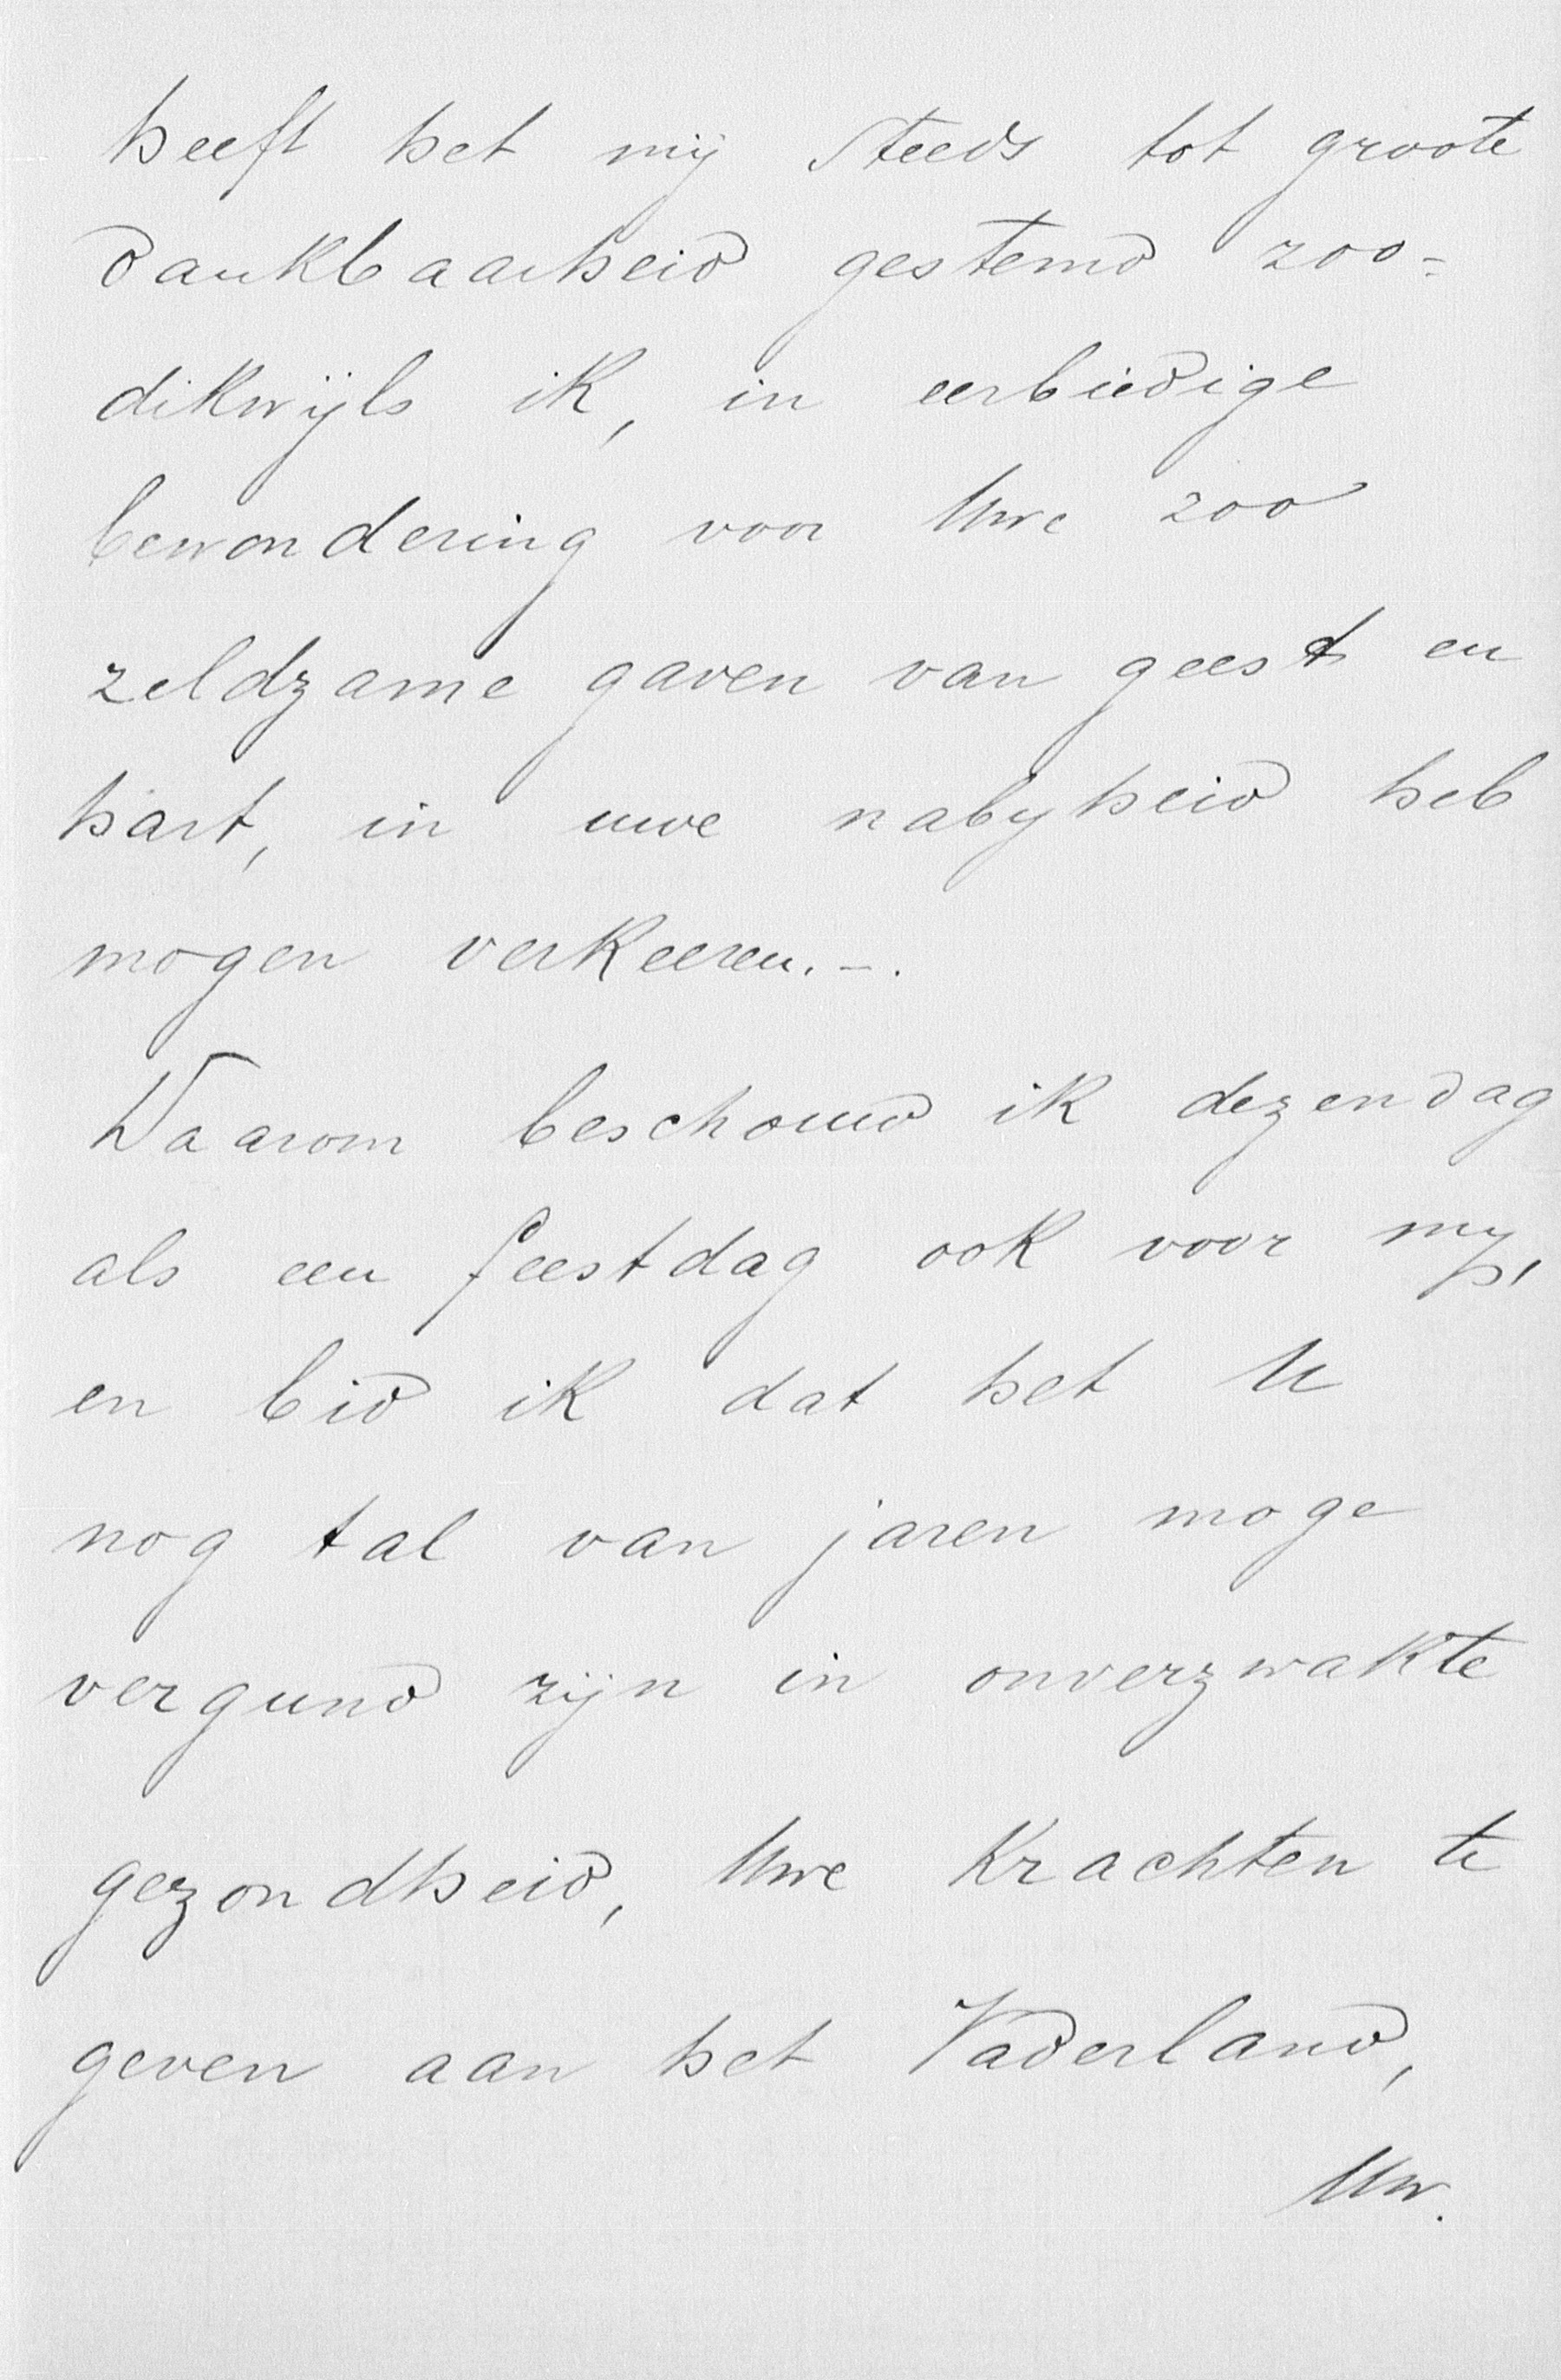 heeft het mij steeds tot groote
dankbaarheid gestemd zoo=
dikwijls ik, in eerbiedige
bewondering voor Uwe zoo
zeldzame gaven van geest en
hart, in uwe nabyheid heb
mogen verkeeren. -.
Daarom beschouwd ik dezen dag
als een feestdag ook voor my,
en bid ik dat het U
nog tal van jaren moge
vergund zijn in onverzwakte
gezondheid, Uwe Krachten te
geven aan het Vaderland,
Uw.